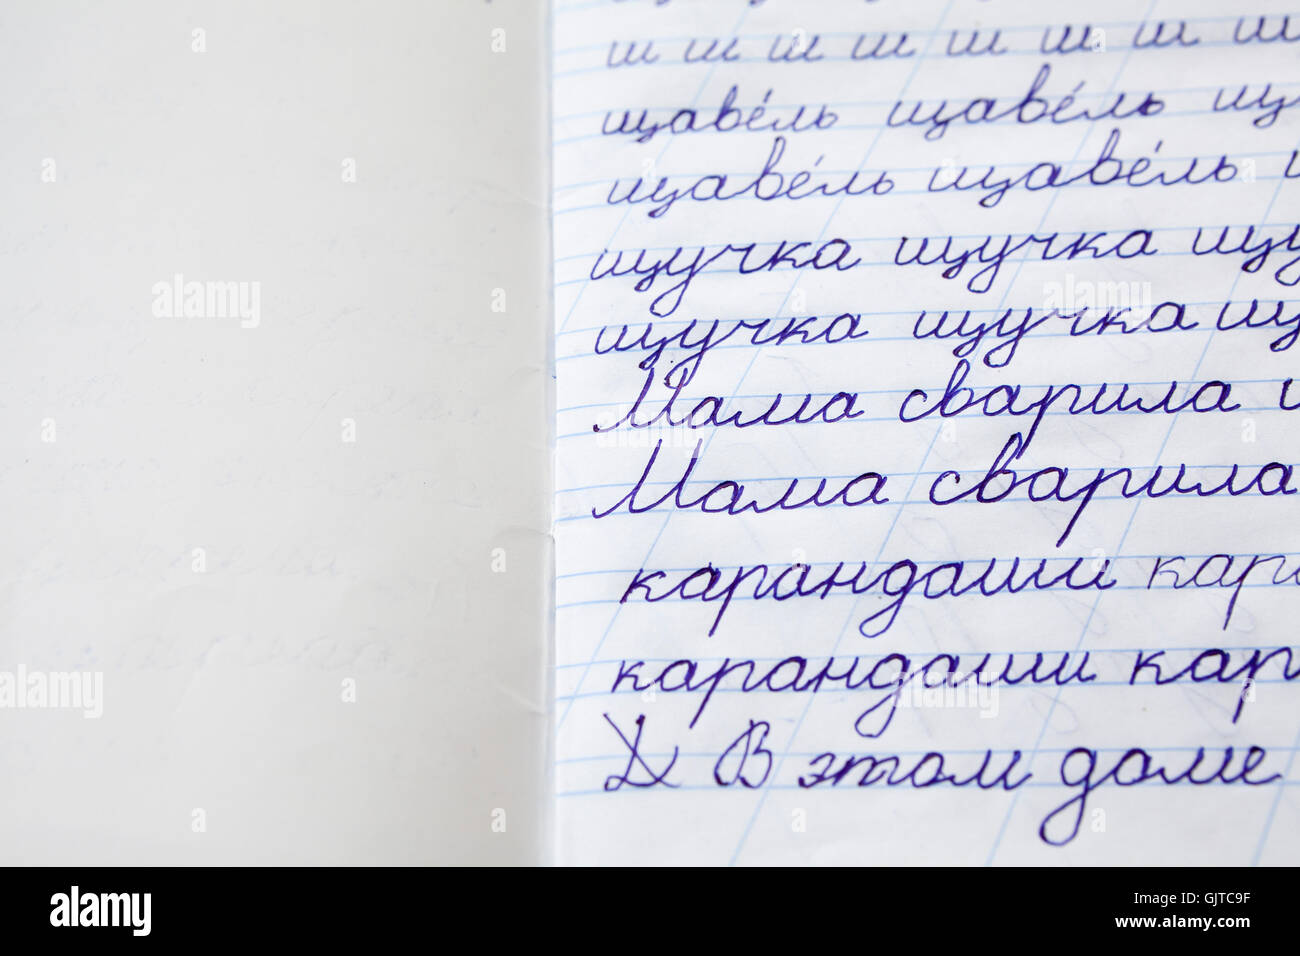 ш ш ш ш ш ш ш ш
щаве́ль щаве́ль щ
щаве́ль щаве́ль
щучка щучка щу
щучка щучка щ
Мама сварила
Мама сварила
карандаши кара
карандаши кар
В этом доме
alamy
alamy stock photo
GJTC9F
www.alamy.com